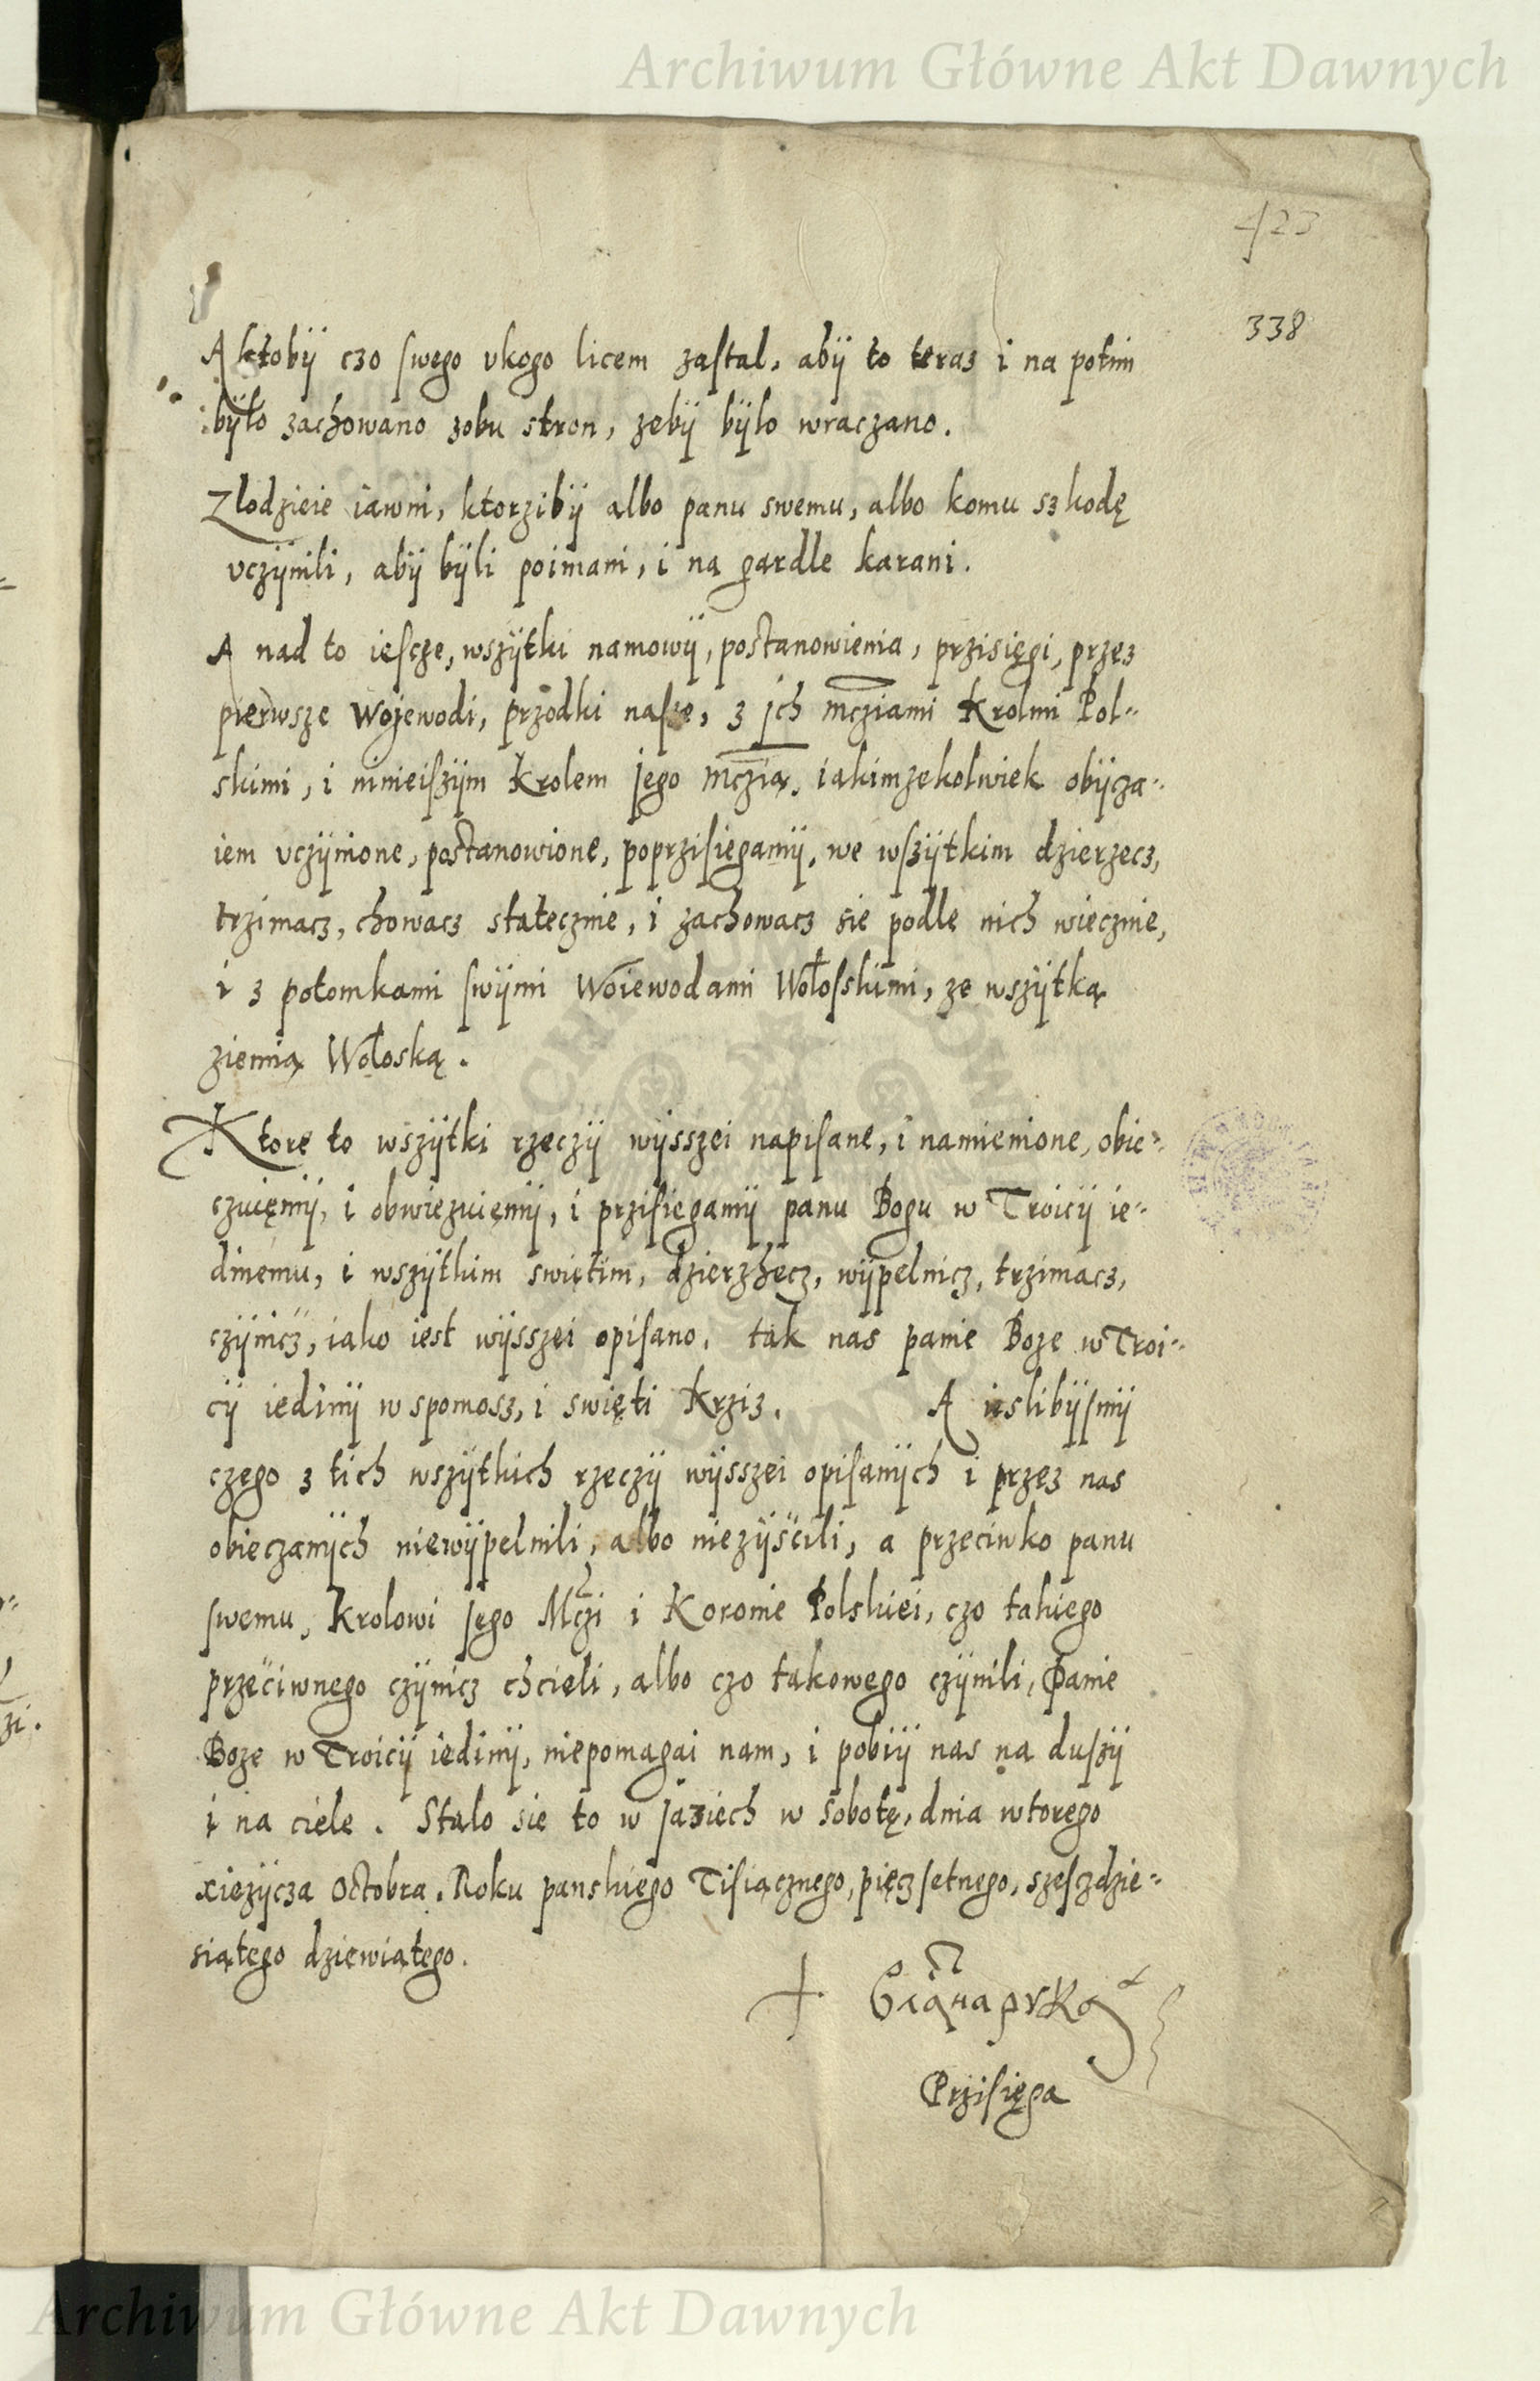 Archiwum Główne Akt Dawnych
423
338
A ktobÿ czo swego vkogo licem zastal, abÿ to teraz i na potim
bÿlo zachowano zobu stron, zebÿ bÿlo wraczano.
Zlodzieie iawni, ktorzibÿ albo panu swemu, albo komu szkodę
vczÿnili, abÿ bÿli poimani, i na gardle karani.
A nad to iescze, wszÿtki namowÿ, postanowienia, przisięgi, przez
pierwsze Wojewodi, przodki nasze, z jch mcziami Krolmi Pol-
skimi, i ninieiszÿm Krolem jego mczią, iakimzekolwiek obÿcza-
iem vczÿnione, postanowione, poprzisięgamÿ, we wszÿtkim dzierzecz,
trzimacz, chowacz statecznie, i zachowacz sie podle nich wiecznie,
i z potomkami swÿmi Woiewodami Wołosskimi, ze wszÿtką
ziemią Wołoską.
Ktore to wszÿtki rzeczÿ wÿsszei napisane, i namienione, obie-
czuięmÿ, i obwiezuięmÿ, i przisięgamÿ panu Bogu w Troicÿ ie-
dinemu, i wszÿtkim swiętim, dzierzhecz, wÿpelnicz, trzimacz,
czÿnicz, iako iest wÿsszei opisano. tak nas panie Boze w Troi-
cÿ iedinÿ wspomosz, i swięti Krziz. A ieslibÿsmÿ
czego z tich wszÿtkich rzeczÿ wÿsszei opisanÿch i przez nas
obieczanÿch niewÿpelnili, albo niezÿscili, a przeciwko panu
swemu, Krolowi jego Mczi i Koronie Polskiei, czo takiego
przeciwnego czÿnicz chcieli, albo czo takowego czÿnili, Panie
Boze w Troicÿ iedinÿ, niepomagai nam, i pobiÿ nas na duszÿ
i na ciele. Stalo sie to w Jasiech w sobotę, dnia wtorego
xiezÿcza Octobra. Roku panskiego Tisiącznego, pięczsetnego, szesczdzie-
siątego dziewiątego.
Przisięga
Archiwum Główne Akt Dawnych